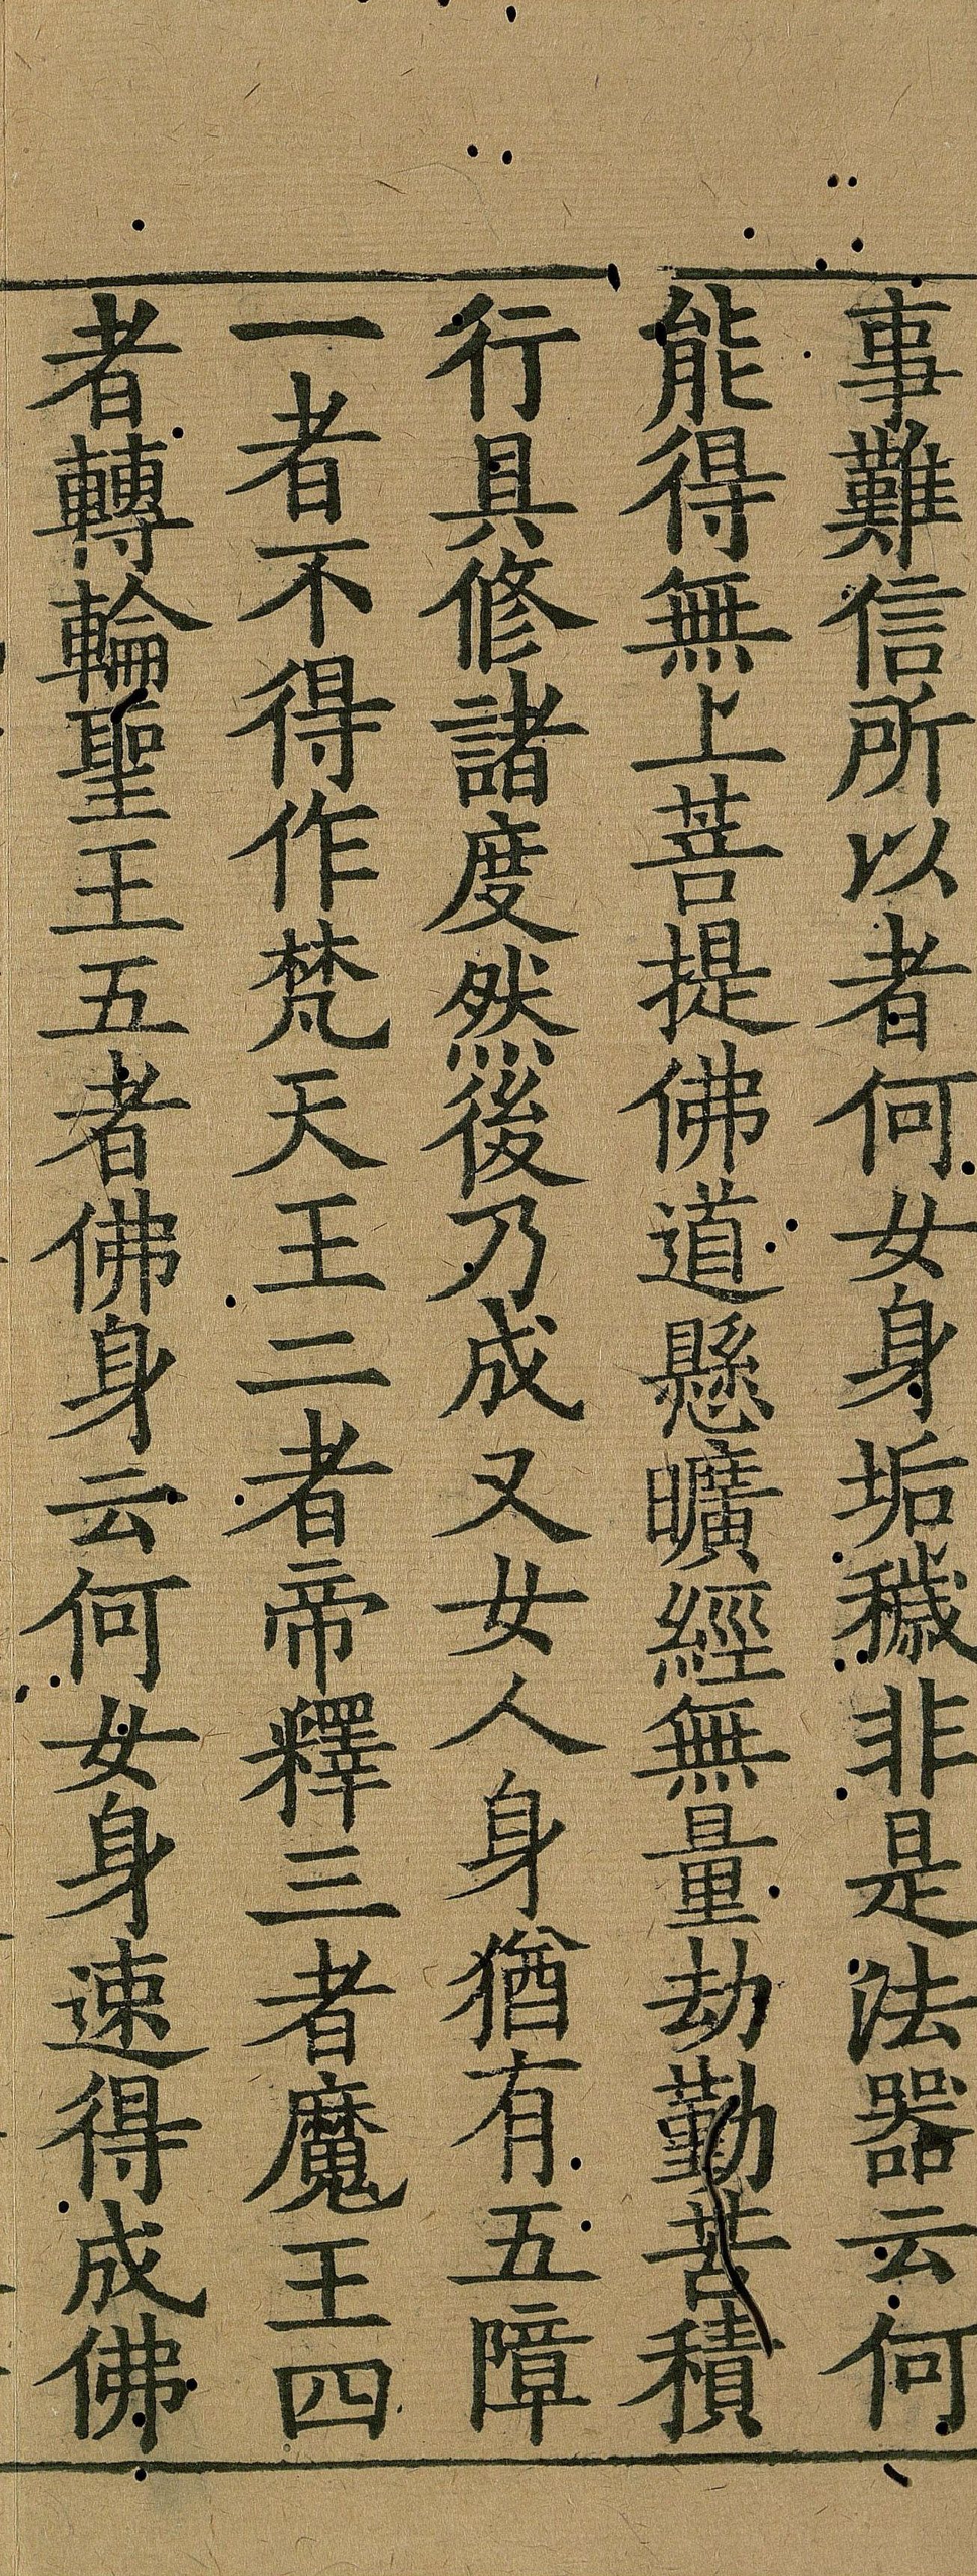 事難信所以者何女身垢穢非是法器云何
能得無上菩提佛道懸曠經無量劫勤苦積
行具修諸度然後乃成又女人身猶有五障
一者不得作梵天王二者帝釋三者魔王四
者轉輪聖王五者佛身云何女身速得成佛